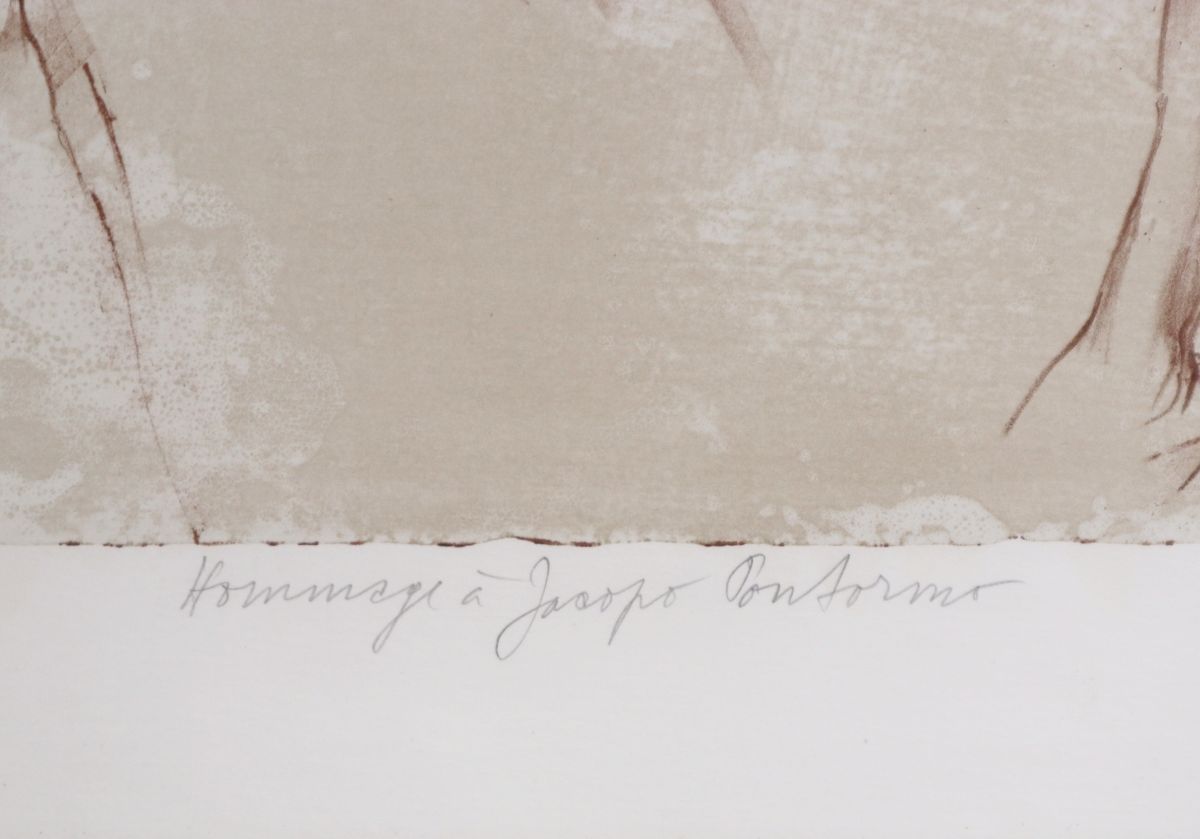 Hommage à Jacopo Pontormo